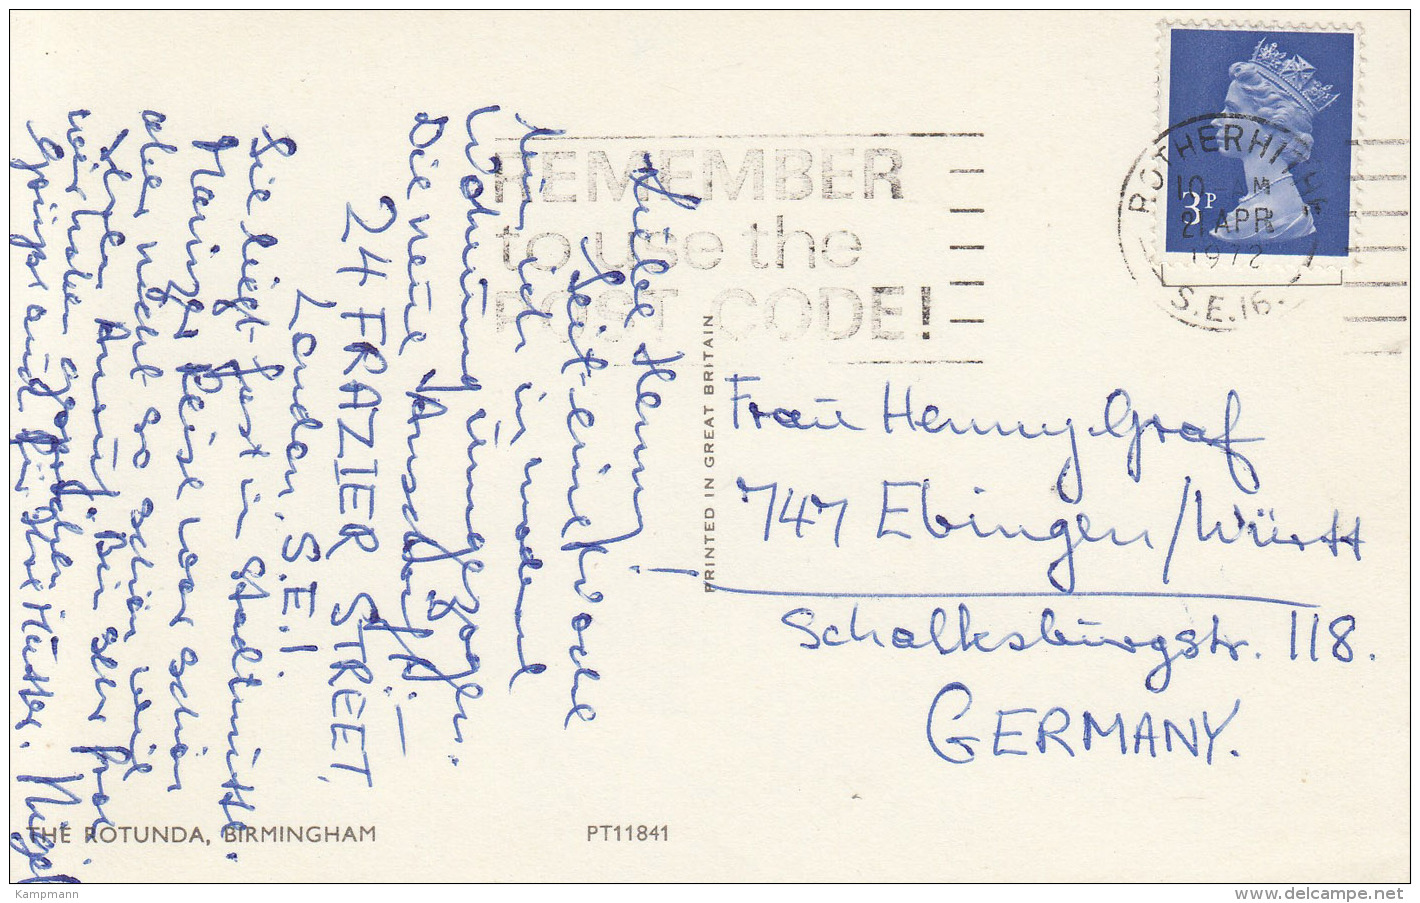 Liebe Henny!
Seit eine Woche
bin ich in madame
Wohnung umgezogen.
Die neue Anschrift:
24 FRAZIER STREET,
London, S.E.1.
Sie liegt fast in Stadtmitte.
Reise war schön
aber nicht so schön weil
Bin sehr froh
wir haben
Gruß auch für Mutter.
REMEMBER
to use the
POST CODE!
ROTHERHITHE
10 AM
21 APR
1972
S.E.16.
3P
PRINTED IN GREAT BRITAIN
Frau Henny Graf
747 Ebingen/Württ
Schalksburgstr. 118.
GERMANY.
THE ROTUNDA, BIRMINGHAM
PT11841
Kampmann
delcampe.net